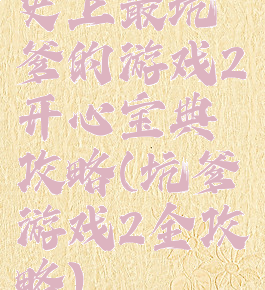 史上最坑
爹的游戏2
开心宝典
攻略(坑爹
游戏2全攻
略)